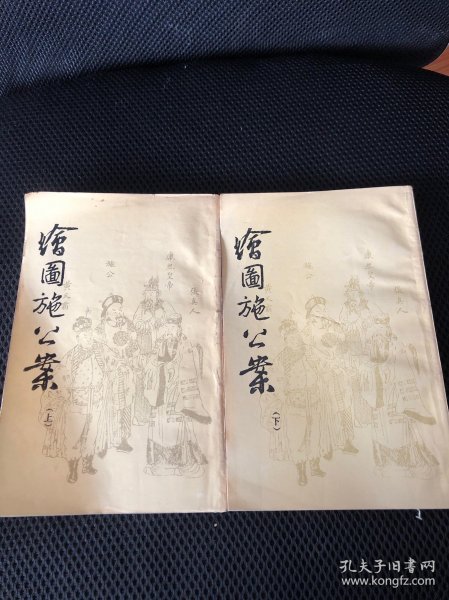 繪圖施公案
（上）
施公
康熙皇帝
張真人
繪圖施公案
（下）
施公
康熙皇帝
張真人
孔夫子旧书网
www.kongfz.com